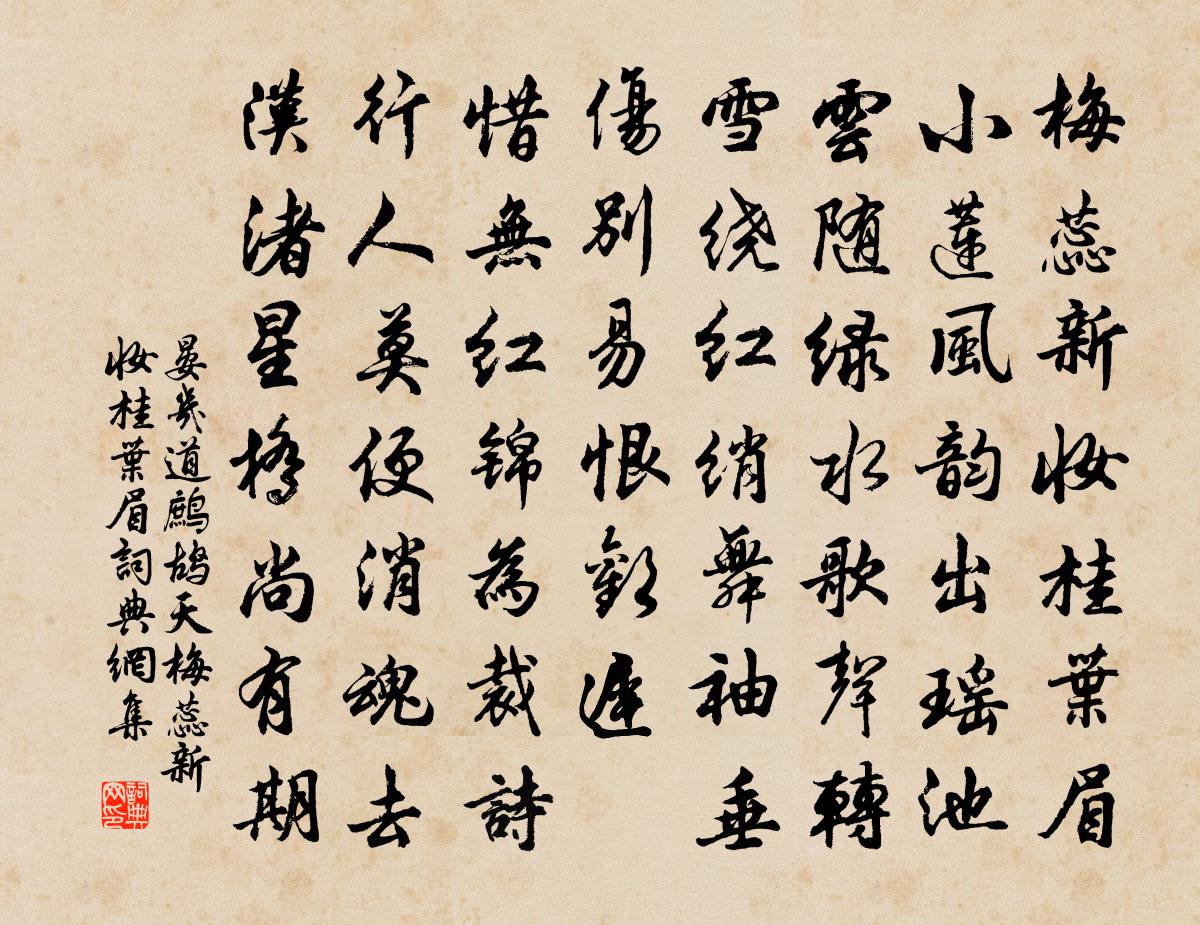 梅蕊新妝桂葉眉
小蓮風韵出瑶池
雲随緑水歌聲轉
雪绕红绡舞袖垂
傷别易恨歡遲
惜無红锦為裁詩
行人莫便消魂去
漢渚星橋尚有期
晏幾道鷓鴣天梅蕊新
妝桂葉眉詞典網集
詞典网印